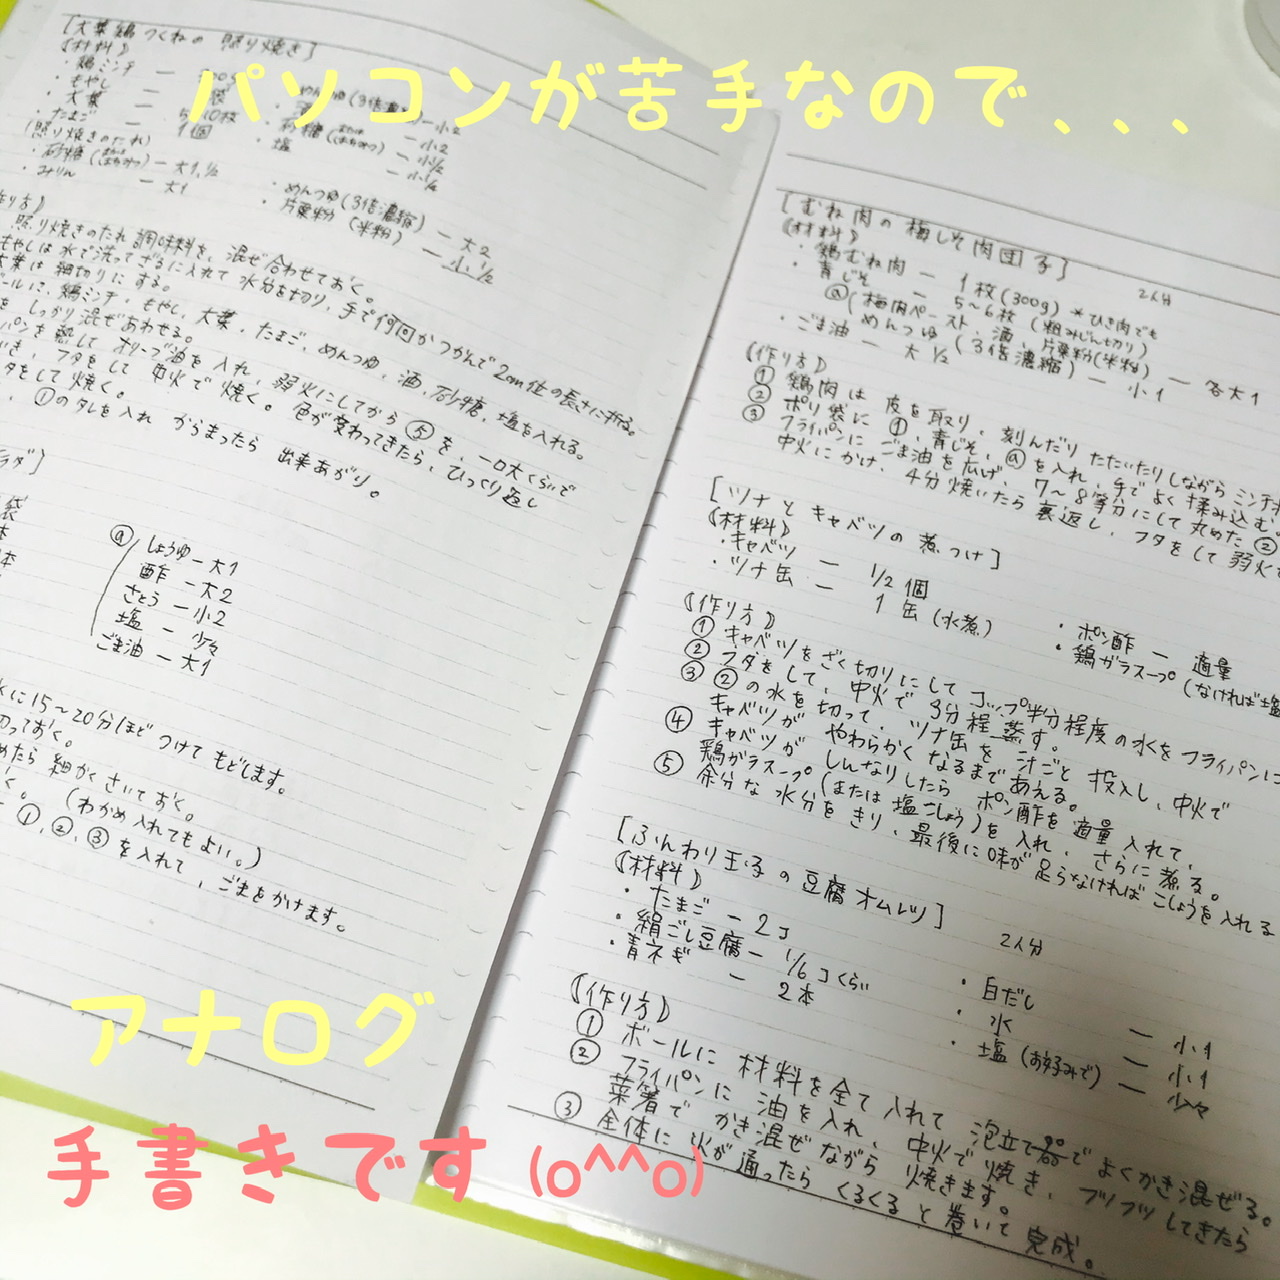 パソコンが苦手なので、、、
[大葉鶏つくねの 照り焼き]
《材料》
・鶏ミンチ ー
・もやし ー 袋
・大葉 ー 5 10枚
・たまご ー 1個
・めんつゆ(3倍濃縮) ー小2
ー小2
・砂糖 ー小1/2
・塩 ー小1/4
(照り焼きのたれ)
・砂糖 ー大1,1/2
・みりん ー大1
・めんつゆ(3倍濃縮) ー 大2
・片栗粉(米粉) ー 小1/2
作り方》
照り焼きのたれ 調味料を、混ぜ合わせておく。
もやしは水で洗ってざるに入れて 水分を切り、手で何回かつかんで2cm位の長さに折る。
大葉は細切りにする。
ボールに、鶏ミンチ・もやし、大葉、たまご、めんつゆ、酒、砂糖、塩を入れる。
を しっかり混ぜあわせる。
パンを熱して オリーブ油を入れ、弱火にしてから⑤を、一口大くらいで
き、フタをして 中火で焼く。色が変わってきたら、ひっくり返し
タをして焼く。
、①のタレを入れ からまったら 出来あがり。
ラダ]
袋
本
本
ⓐ しょうゆー大1
酢ー大2
さとうー小2
塩ー少々
ごま油ー大1
水に15～20分ほど つけて もどします。
切っておく。
めたら 細かくさいておく。
く。 (わかめ入れてもよい。)
①、②、③を入れて、ごまをかけます。
[むね肉の梅しそ肉団子]
《材料》 2人分
・鶏むね肉 ー 1枚(300g) *ひき肉でも
・青じそ ー 5～6枚(粗みじん切り)
ⓐ(梅肉ペースト、酒、片栗粉(米粉) ー 各大1
めんつゆ(3倍濃縮) ー 小1
・ごま油 ー 大1/2
《作り方》
① 鶏肉は 皮を取り、刻んだり たたいたりしながら ミンチ
② ポリ袋に①、青じそ、ⓐを入れ、手でよく揉み込む。
③ フライパンに ごま油を広げ、7～8等分にして丸めた②
中火にかけ、4分焼いたら裏返し、フタをして弱火
[ツナとキャベツの煮つけ]
《材料》
・キャベツ ー 1/2個
・ツナ缶 ー 1缶(水煮)
・ポン酢 ー 適量
・鶏ガラスープ(なければ塩
《作り方》
① キャベツをざく切りにして コップ半分程度の水をフライパンに
② フタをして、中火で3分程 蒸す。
③ ②の水を切って、ツナ缶を 汁ごと 投入し、中火で
キャベツが やわらかくなるまであえる。
④ キャベツが しんなりしたら ポン酢を適量入れて、
鶏ガラスープ(または塩こしょう)を入れ、さらに煮る。
⑤ 余分な水分をきり、最後に味が足らなければこしょうを入れる
[ふんわり玉子の豆腐オムレツ]
《材料》 2人分
・たまご ー 2コ
・絹ごし豆腐ー 1/6コくらい
・青ネギ ー 2本
・白だし ー 小1
・水 ー 小1
・塩(お好みで) ー 少々
《作り方》
① ボールに 材料を全て入れて 泡立て器でよくかき混ぜる。
② フライパンに 油を入れ、中火で焼き、ブツブツしてきたら
菜箸で かき混ぜながら 焼きます。
③ 全体に火が通ったら くるくると巻いて 完成。
アナログ
手書きです (o^^o)